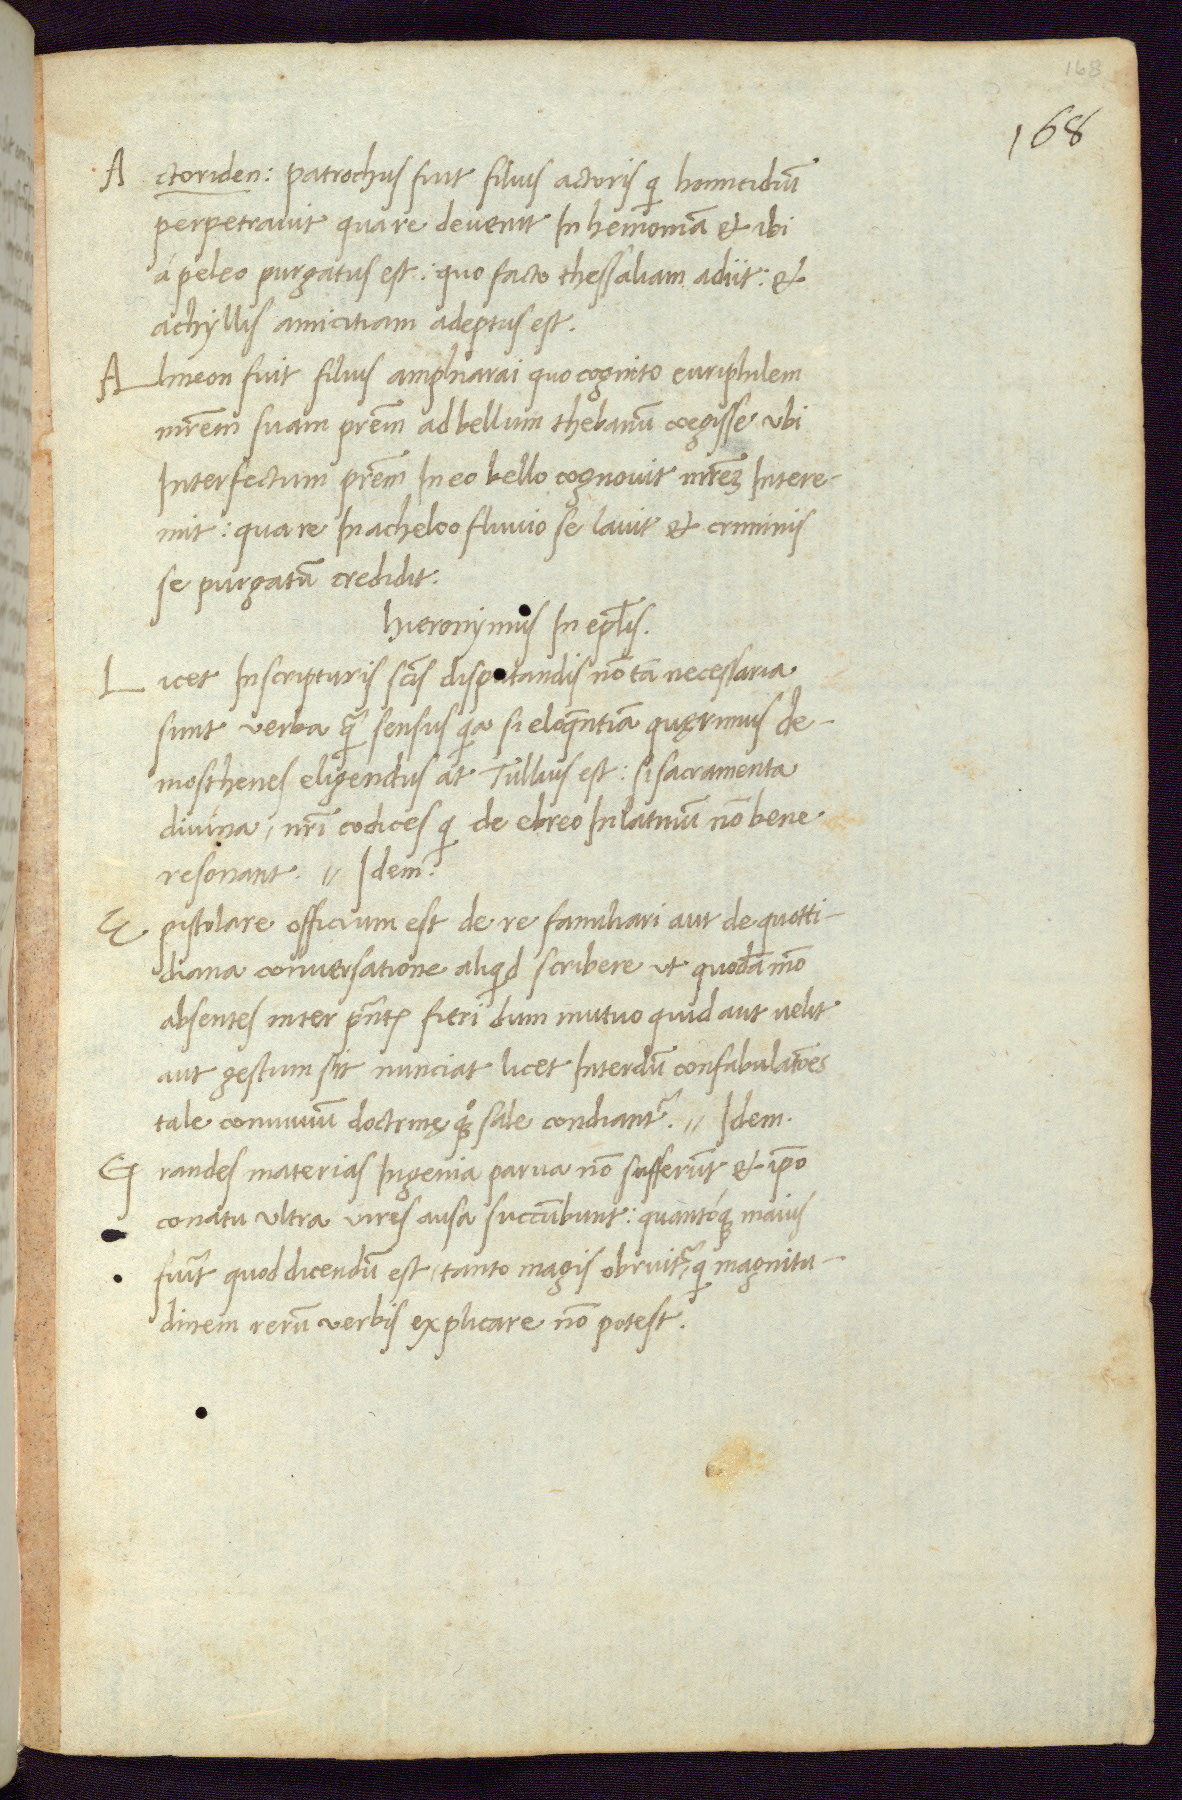 168
168
Actoriden: patrochus fuit filius actoris qͥ homicidiū
perpetrauit quare deuenit In hemoniā et ibi
á peleo purgatus est: quo facto thessaliam adiit: et
achyllis amicitiam adeptus est.
Almeon fuit filius amphiarai quo cognito euriphilem
mr̄em suam pr̄em ad bellum thebanū coegisse vbi
Interfectum pr̄em In eo bello cognouit mr̄eꝫ Intere-
mit: quare In acheloo fluuio se lauit et criminis
se purgatū credidit.
hieronymus In epl̄is.
Licet In scripturis sc̄is disputandis nō tā necessaria
sunt verba qᷓ sensus qͥa si eloq̄ntiā quęrimus de-
mosthenes eligendus at Tullius est: si sacramenta
diuina, nr̄i codices qͥ de ebreo In latinū nō bene
resonant. // Idem.
Epistolare officium est de re familiari aut de quotti-
diana conuersatione aliqͥd scribere ut quodā mō
absentes inter pn̄tes fieri dum mutuo quid aut uelit
aut gestum sit nunciat licet Interdū confabulatōes
tale conuiuiū doctrinę qͦqꝫ sale condiantᷣ. // Idem.
Grandes materias Ingenia parua nō sufferūt et ip̄o
conatu vltra vires ausa succūbunt: quantóqꝫ maius
fuīt quod dicendū est, tanto magis obruitᷣ, qͥ magnitu-
dinem rerū verbis explicare nō potest.